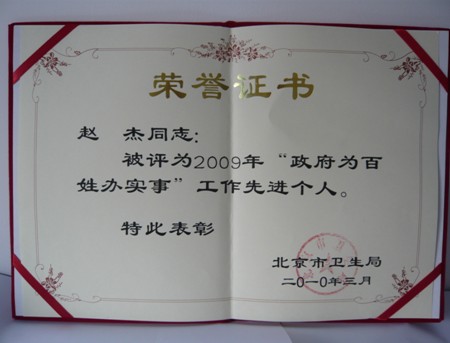 荣誉证书
赵 杰同志：
被评为2009年“政府为百
姓办实事”工作先进个人。
特此表彰
北京市卫生局
二〇一〇年三月